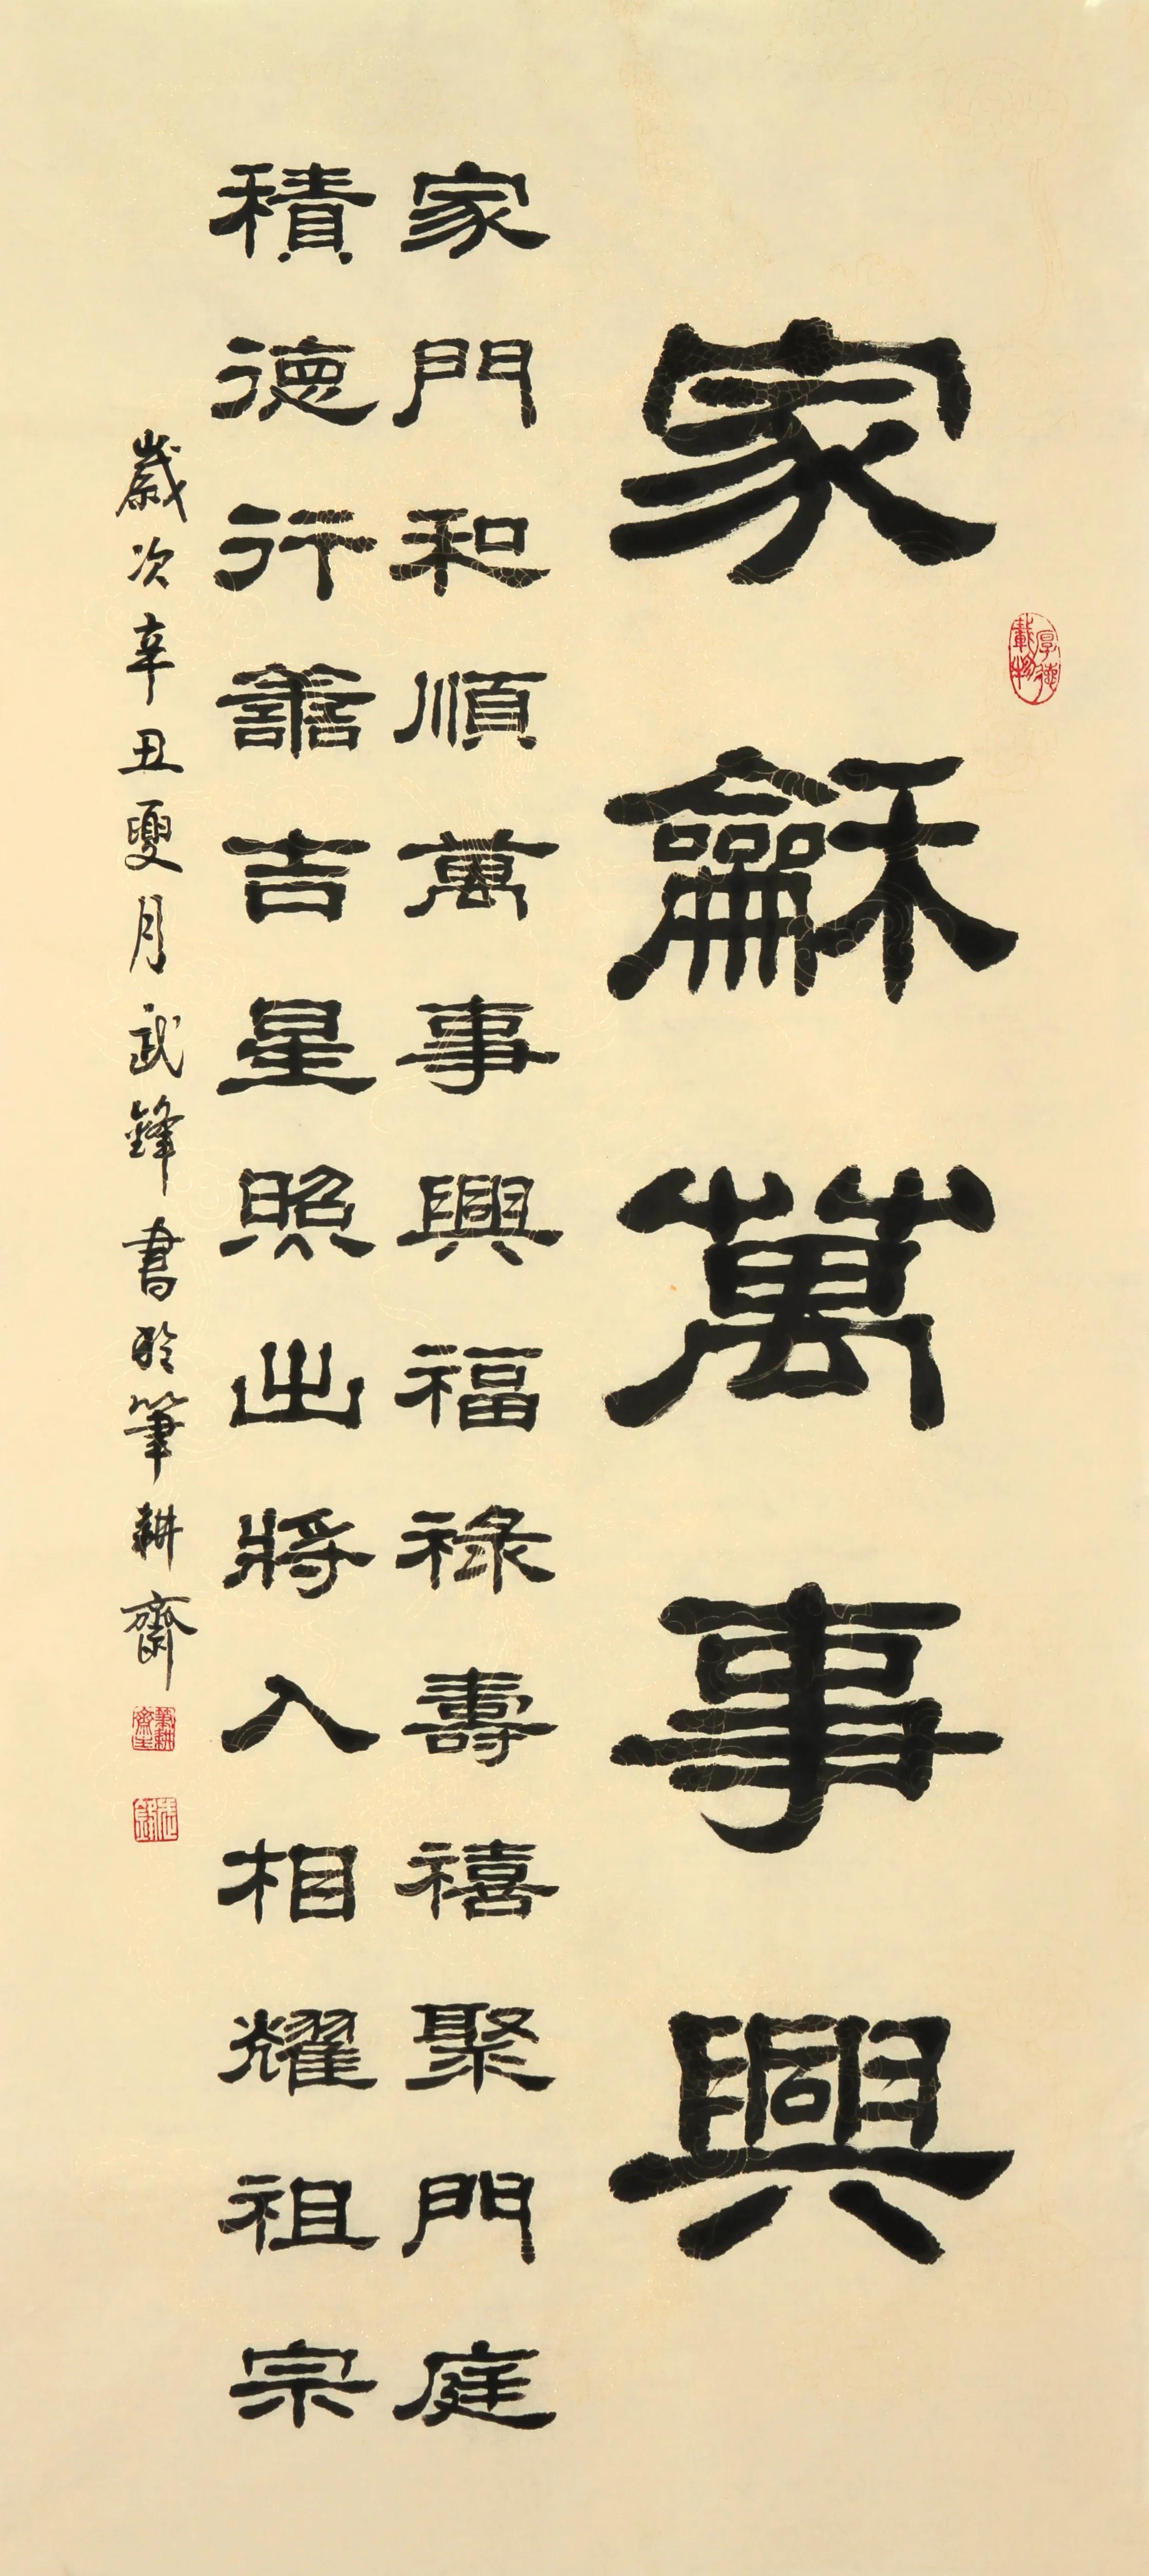 家龢萬事興
厚德載物
家門和順萬事興福祿壽禧聚門庭
積德行善吉星照出將入相耀祖宗
歲次辛丑夏月武鋒書於筆耕齋
筆耕齋